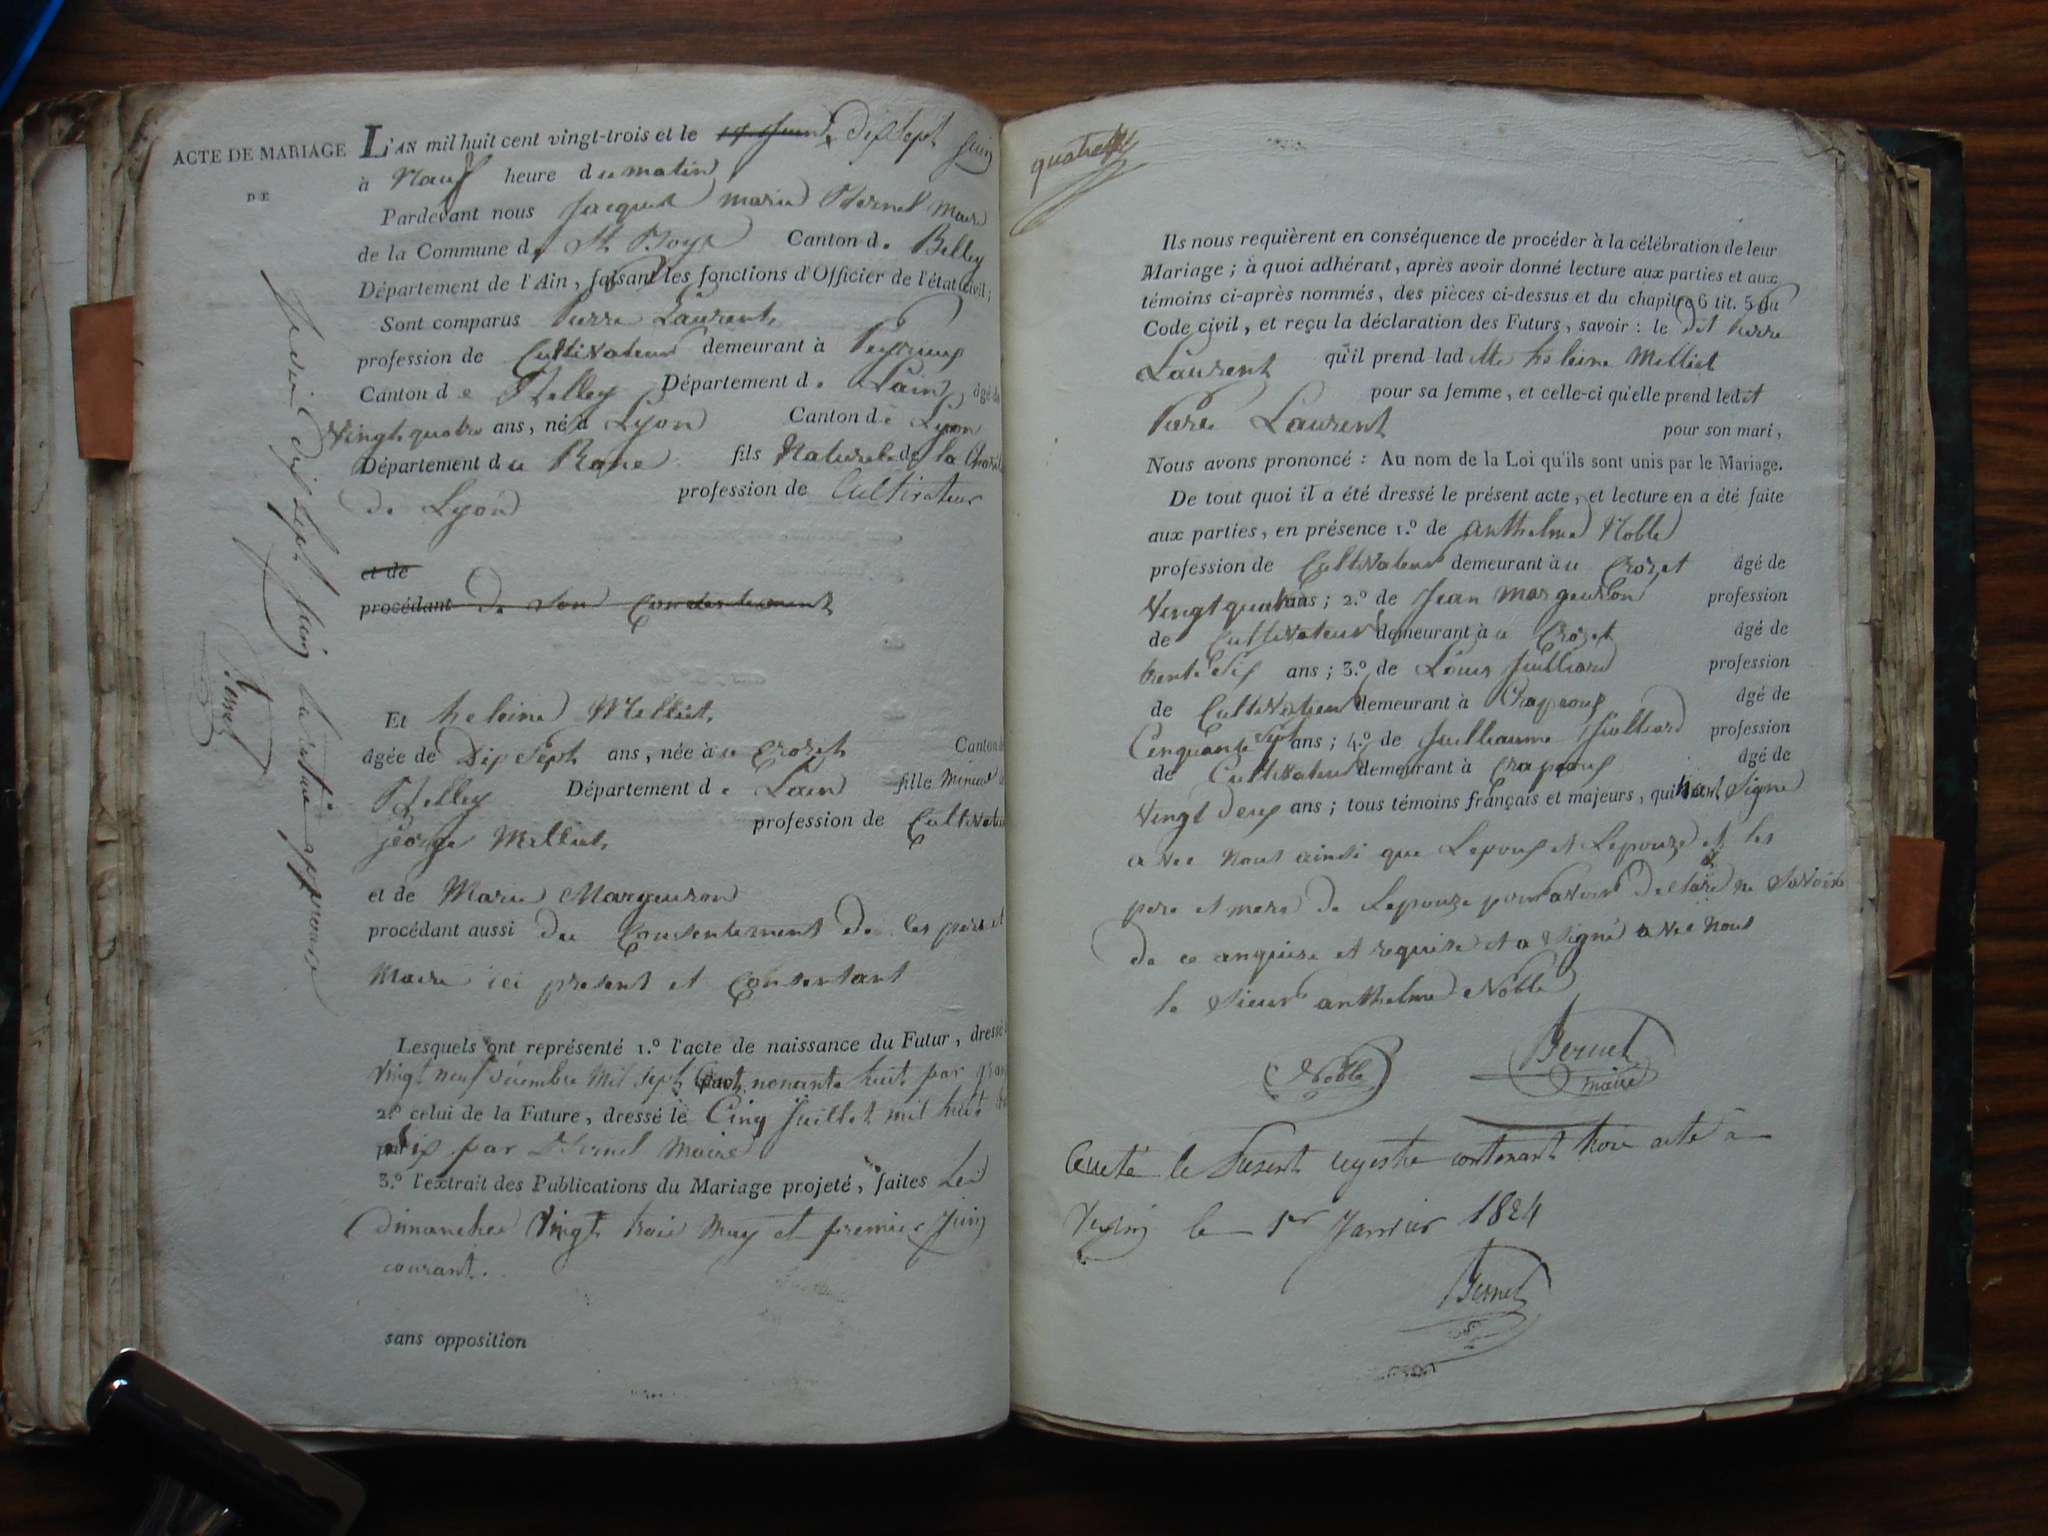 ACTE DE MARIAGE
DE
L'AN mil huit cent vingt-trois et le 17 Juin dix Sept Juin
à Nauf heure du matin
Pardevant nous Jacques marie Bernel maire
de la Commune de St Boys Canton de Belley
Département de l'Ain, faisant les fonctions d'Officier de l'état civil;
Sont comparus Pierre Laurent
profession de Cultivateur demeurant à Peyrieux
Canton de Belley Département de Lain âgé de
Vingt quatre ans, né à Lyon Canton de Lyon
Département du Rone fils Naturel de la Charité
de Lyon profession de Cultivateur
et de
procédant de son Consentement
Et heleine Melliet
âgée de Dix Sept ans, née au Crozet Canton de
Belley Département de Lain fille
george Melliet profession de Cultivateur
et de Marie Margeuron
procédant aussi du Consentement de ses pere et
Maire ici present et Consentant
Lesquels ont représenté 1.º l'acte de naissance du Futur, dressé
Vingt neuf mil sept cent nonante huit par
2.º celui de la Future, dressé le Cinq Juillet mil huit
six par Bernel Maire
3.º l'extrait des Publications du Mariage projeté, faites Les
dimanches Vingt trois may et premier Juin
courant.
sans opposition
Je dix Sept Juin approuvé
Bernel
quatre
Ils nous requièrent en conséquence de procéder à la célébration de leur
Mariage; à quoi adhérant, après avoir donné lecture aux parties et aux
témoins ci-après nommés, des pièces ci-dessus et du chapitre 6 tit. 5 du
Code civil, et reçu la déclaration des Futurs, savoir: le dit Pierre
Laurent qu'il prend ladette heleine Melliet
pour sa femme, et celle-ci qu'elle prend ledit
Piere Laurent pour son mari,
Nous avons prononcé: Au nom de la Loi qu'ils sont unis par le Mariage.
De tout quoi il a été dressé le présent acte, et lecture en a été faite
aux parties, en présence 1.º de anthelme Noble
profession de Cultivateur demeurant à u Crozet âgé de
Vingt quatre ans; 2.º de Jean margeuron profession
de Cultivateur demeurant à u Crozet âgé de
trente Six ans; 3.º de Louis Juilliard profession
de Cultivateur demeurant à Crapeoux âgé de
Cinquante Sept ans; 4.º de Juilliaume Juilliard profession
de Cultivateur demeurant à Crapeoux âgé de
Vingt Deux ans; tous témoins français et majeurs, qui nont Signé
avec nous ainsi que Lepoux et Lepouze et les
pere et mere de Lepouze pour avoir Declaré ne Savoir
de ce anquise et requise et a Signé avec nous
le Sieur anthelme Noble
Noble
Bernel
maire
le Present registre contenant trois acte à
le 1er Janvier 1824
Bernel